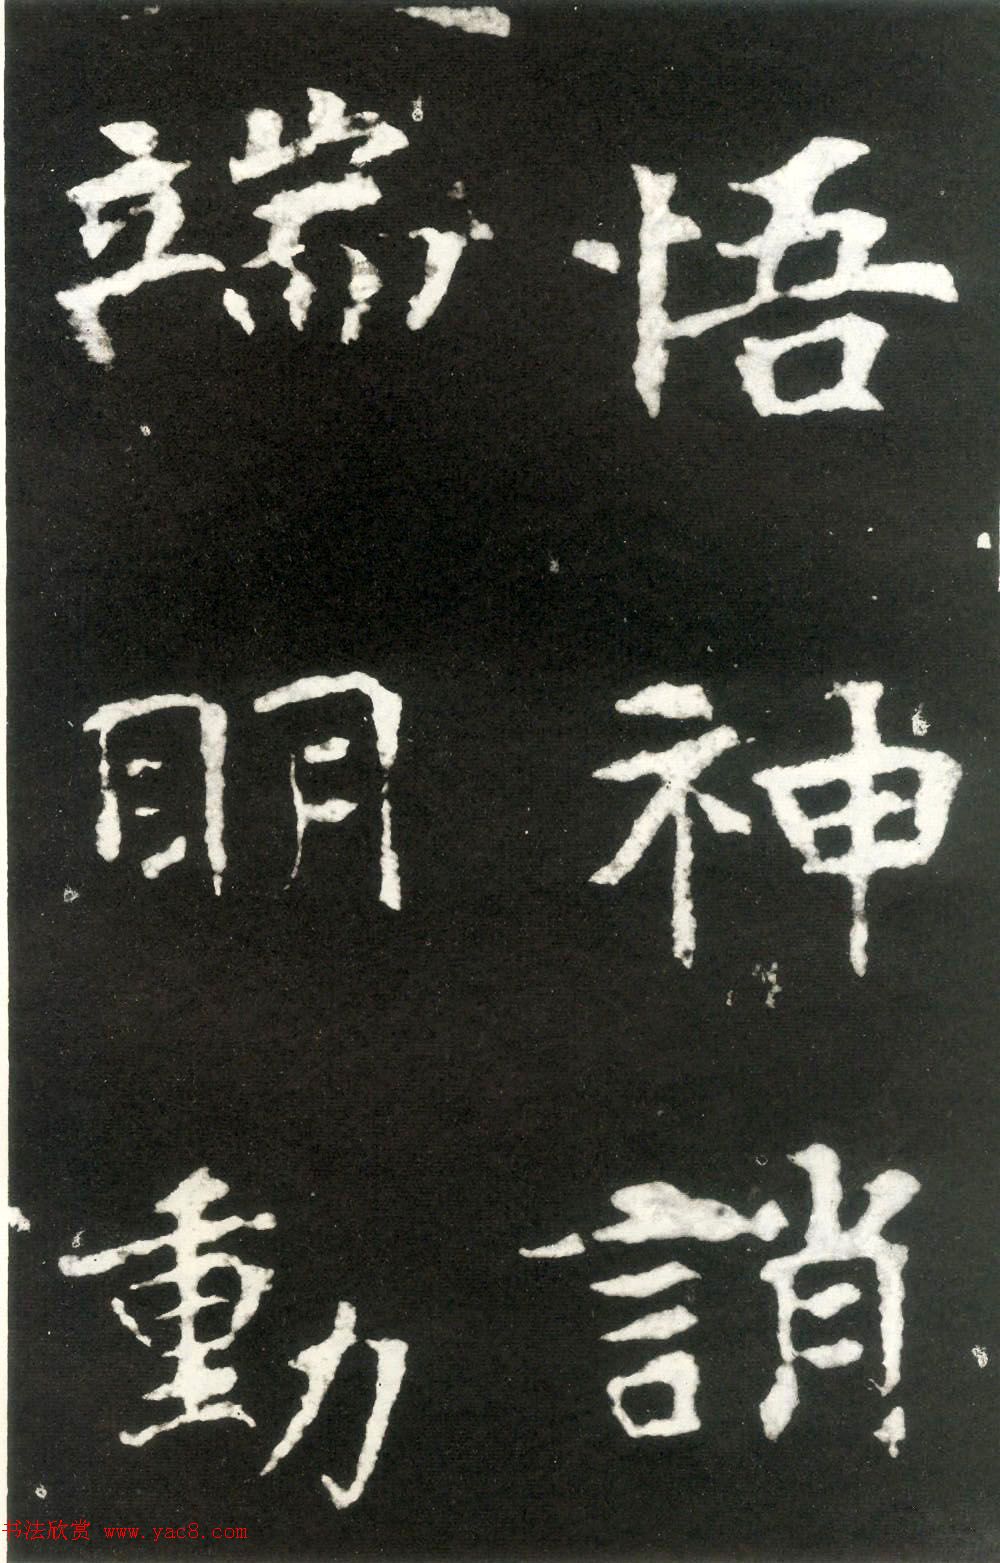 悟神誚
端明動
书法欣赏 www.yac8.com